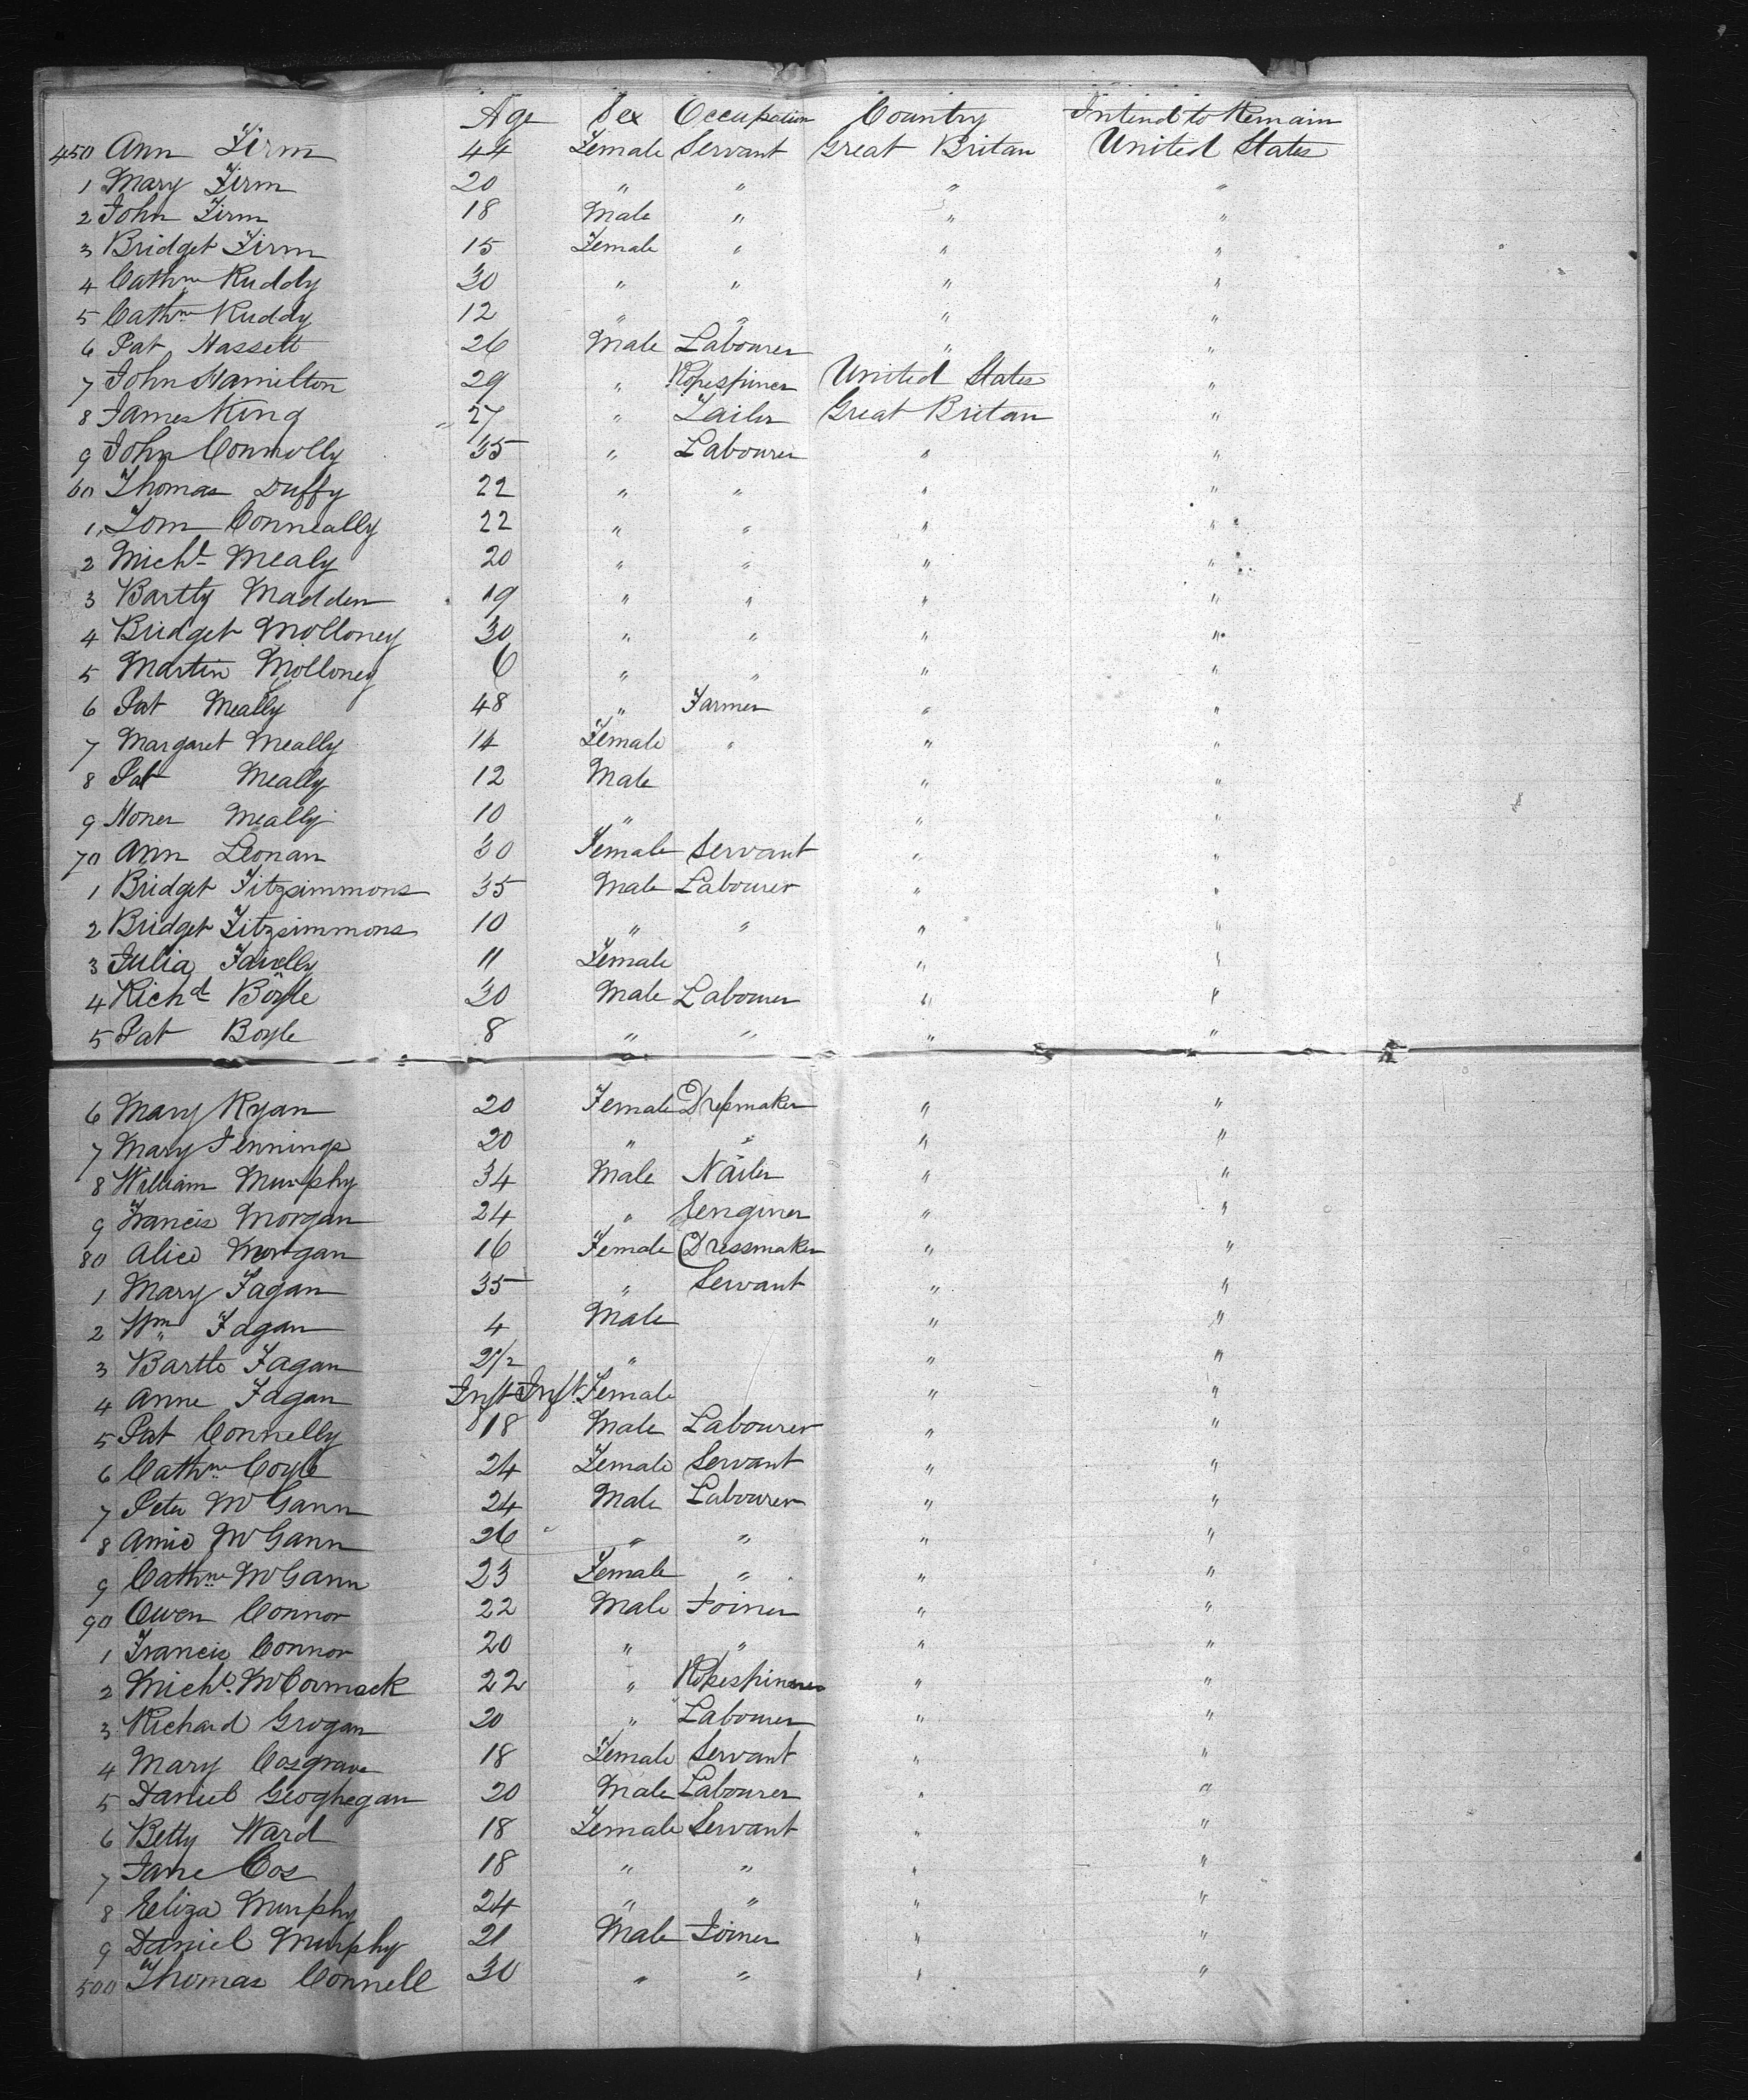 Age Sex Occupation Country Intend to Remain
450 Ann Firm 44 Female Servant Great Britan United States
1 Mary Firm 20 " " " "
2 John Firm 18 Male " " "
3 Bridget Firm 15 Female " " "
4 Cathne Ruddy 30 " " " "
5 Cathne Ruddy 12 " " " "
6 Pat Hassett 26 Male Labourer " "
7 John Hamilton 29 " Ropespiner United States "
8 James King 27 " Tailer Great Britan "
9 John Connolly 35 " Labourer " "
60 Thomas Duffy 22 " " " "
1 Tom Conneally 22 " " " "
2 Michl Mealy 20 " " " "
3 Bartly Madden 19 " " " "
4 Bridget Molloney 30 " " " "
5 Martin Molloney 6 " " " "
6 Pat Meally 48 " Farmer " "
7 Margaret Meally 14 Female " " "
8 Pat Meally 12 Male " "
9 Honer Meally 10 " " "
70 Ann Leonan 30 Female Servant " "
1 Bridget Fitzsimmons 35 Male Labourer " "
2 Bridget Fitzsimmons 10 " " " "
3 Julia 11 Female " "
4 Richd Boyle 30 Male Labourer " "
5 Pat Boyle 8 " " " "
6 Mary Ryan 20 Female Dressmaker " "
7 Mary Jennings 20 " " " "
8 William Murphy 34 Male Nailer " "
9 Francis Morgan 24 " Eenginer " "
80 Alice Morgan 16 Female Dressmaker " "
1 Mary Fagan 35 " Servant " "
2 Wm Fagan 4 Male " "
3 Bartle Fagan 2 1/2 " " "
4 Anne Fagan Inft Inft Female " "
5 Pat Connelly 18 Male Labourer " "
6 Cathne Coyle 24 Female Servant " "
7 Peter McGann 24 Male Labourer " "
8 Annie McGann 26 " " " "
9 Cathne McGann 23 Female " " "
90 Owen Connor 22 Male Joiner " "
1 Francis Connor 20 " " " "
2 Michl McCormack 22 " Ropespiner " "
3 Richard Grogan 20 " Labourer " "
4 Mary Cosgrave 18 Female Servant " "
5 Daniel Geoghegan 20 Male Labourer " "
6 Betty Ward 18 Female Servant " "
7 Jane Cox 18 " " " "
8 Eliza Murphy 24 " " " "
9 Daniel Murphy 21 Male Joiner " "
500 Thomas Connell 30 " " " "